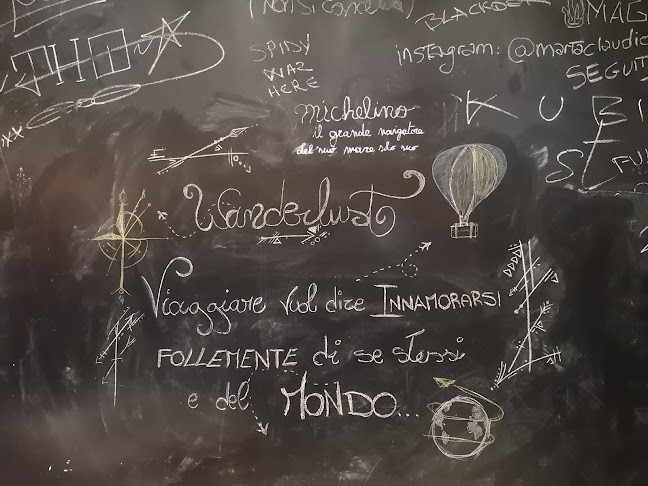 (NON SI CANCELLA)
BLACKDE
MAG
SPIDY
WAZ
HERE
instagram: @martaclaudic
SEGUIT
xx
Michelino
il grande navigatore
del suo mare solo suo
K U B I
St
FU
Wanderlust
Viaggiare vuol dire INNAMORARSI
FOLLEMENTE di se stessi
e del MONDO...